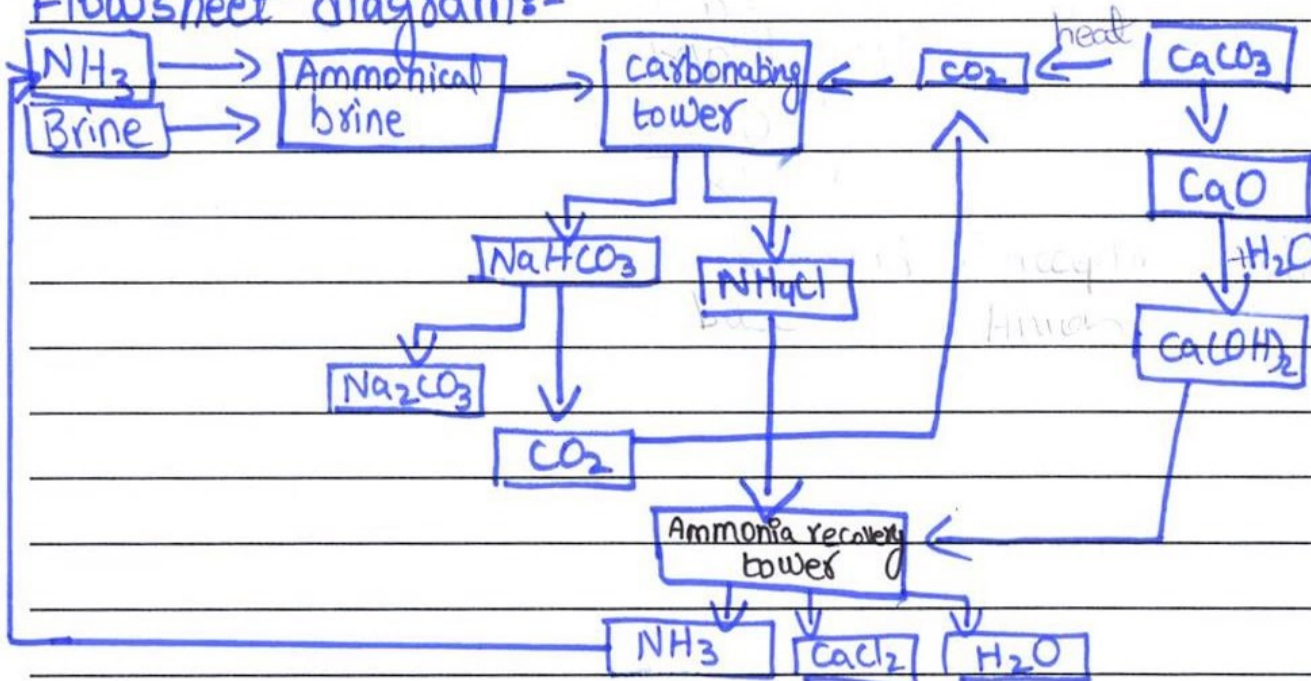 Flowsheet diagram:-
NH3
Brine
Ammonical
brine
carbonating
tower
CO2
heat
CaCO3
CaO
+H2O
Ca(OH)2
NaHCO3
NH4Cl
Na2CO3
CO2
Ammonia recovery
tower
NH3
CaCl2
H2O